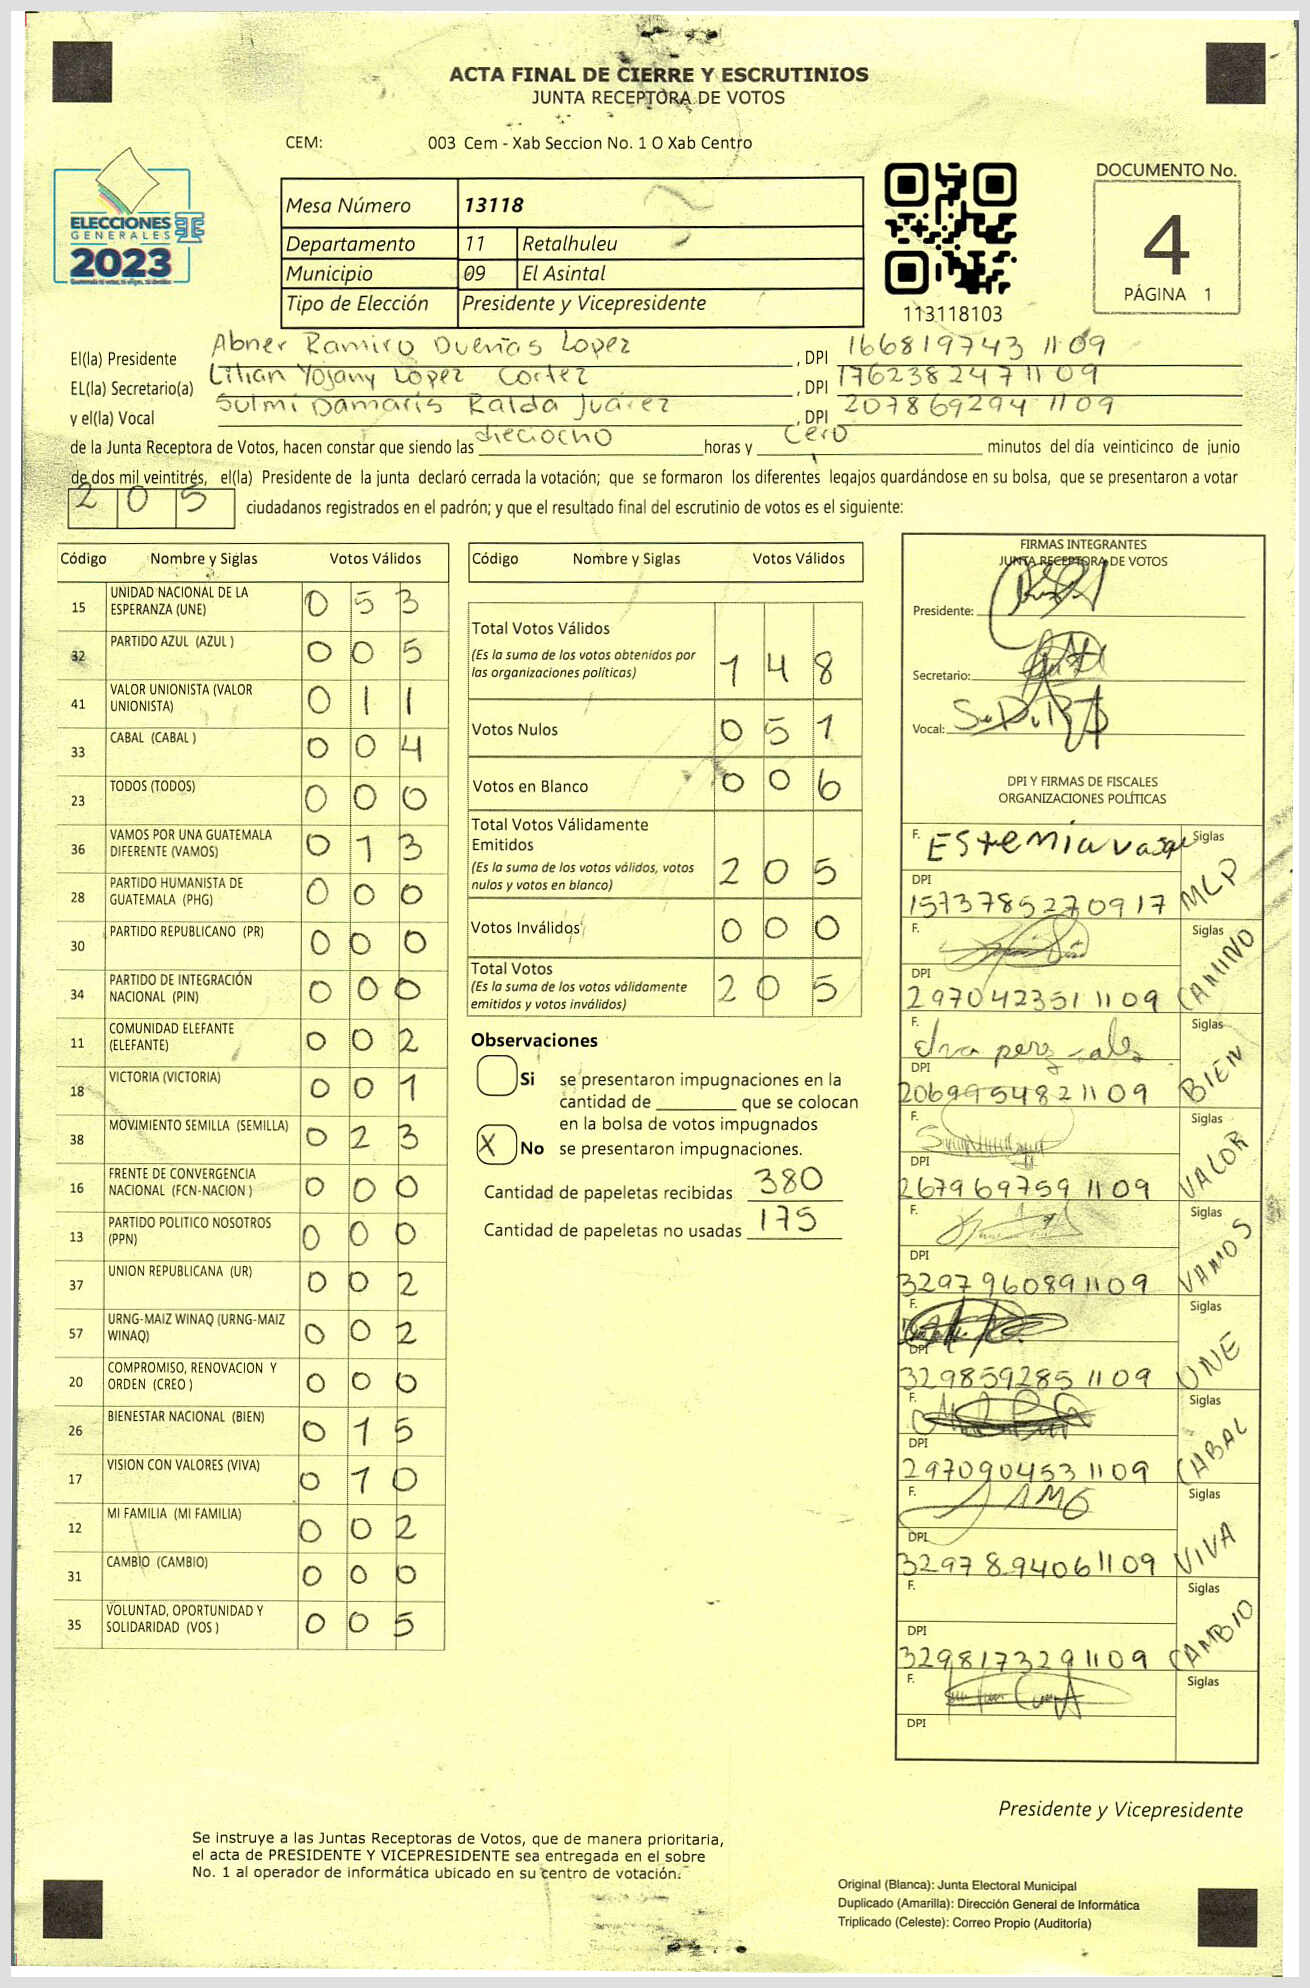 ACTA FINAL DE CIERRE Y ESCRUTINIOS
JUNTA RECEPTORA DE VOTOS
CEM: 003 Cem - Xab Seccion No. 1 O Xab Centro
ELECCIONES
GENERALES
2023
Mesa Número 13118
Departamento 11 Retalhuleu
Municipio 09 El Asintal
Tipo de Elección Presidente y Vicepresidente
113118103
DOCUMENTO No.
4
PÁGINA 1
El(la) Presidente Abner Ramiro Dueñas Lopez , DPI 166819743 1109
EL(la) Secretario(a) Lilian Yojany López Cortez , DPI 176238247 1109
y el(la) Vocal Sulmi Damaris Ralda Juárez , DPI 207869294 1109
de la Junta Receptora de Votos, hacen constar que siendo las dieciocho horas y cero minutos del día veinticinco de junio
de dos mil veintitrés, el(la) Presidente de la junta declaró cerrada la votación; que se formaron los diferentes legajos guardándose en su bolsa, que se presentaron a votar
205 ciudadanos registrados en el padrón; y que el resultado final del escrutinio de votos es el siguiente:
Código Nombre y Siglas Votos Válidos
15 UNIDAD NACIONAL DE LA ESPERANZA (UNE) 053
32 PARTIDO AZUL (AZUL ) 005
41 VALOR UNIONISTA (VALOR UNIONISTA) 011
33 CABAL (CABAL ) 004
23 TODOS (TODOS) 000
36 VAMOS POR UNA GUATEMALA DIFERENTE (VAMOS) 013
28 PARTIDO HUMANISTA DE GUATEMALA (PHG) 000
30 PARTIDO REPUBLICANO (PR) 000
34 PARTIDO DE INTEGRACIÓN NACIONAL (PIN) 000
11 COMUNIDAD ELEFANTE (ELEFANTE) 002
18 VICTORIA (VICTORIA) 001
38 MOVIMIENTO SEMILLA (SEMILLA) 023
16 FRENTE DE CONVERGENCIA NACIONAL (FCN-NACION ) 000
13 PARTIDO POLITICO NOSOTROS (PPN) 000
37 UNION REPUBLICANA (UR) 002
57 URNG-MAIZ WINAQ (URNG-MAIZ WINAQ) 002
20 COMPROMISO, RENOVACION Y ORDEN (CREO ) 000
26 BIENESTAR NACIONAL (BIEN) 015
17 VISION CON VALORES (VIVA) 010
12 MI FAMILIA (MI FAMILIA) 002
31 CAMBIO (CAMBIO) 000
35 VOLUNTAD, OPORTUNIDAD Y SOLIDARIDAD (VOS ) 005
Código Nombre y Siglas Votos Válidos
Total Votos Válidos
(Es la suma de los votos obtenidos por
las organizaciones políticas) 148
Votos Nulos 051
Votos en Blanco 006
Total Votos Válidamente
Emitidos
(Es la suma de los votos válidos, votos
nulos y votos en blanco) 205
Votos Inválidos 000
Total Votos
(Es la suma de los votos válidamente
emitidos y votos inválidos) 205
Observaciones
Si se presentaron impugnaciones en la
cantidad de ________ que se colocan
en la bolsa de votos impugnados
X No se presentaron impugnaciones.
Cantidad de papeletas recibidas 380
Cantidad de papeletas no usadas 175
FIRMAS INTEGRANTES
JUNTA RECEPTORA DE VOTOS
Presidente:
Secretario:
Vocal:
DPI Y FIRMAS DE FISCALES
ORGANIZACIONES POLÍTICAS
F. Siglas
DPI 1573785270917 MLP
F. Siglas
DPI 297042351 1109 CAMINO
F. Siglas
DPI 206995482 1109 BIEN
F. Siglas
DPI 267969759 1109 VALOR
F. Siglas
DPI 329796089 1109 VAMOS
F. Siglas
DPI 329859285 1109 UNE
F. Siglas
DPI 297090453 1109 CABAL
F. Siglas
DPI 329789406 1109 VIVA
F. Siglas
DPI 329817329 1109 CAMBIO
F. Siglas
DPI
Presidente y Vicepresidente
Se instruye a las Juntas Receptoras de Votos, que de manera prioritaria,
el acta de PRESIDENTE Y VICEPRESIDENTE sea entregada en el sobre
No. 1 al operador de informática ubicado en su centro de votación.
Original (Blanca): Junta Electoral Municipal
Duplicado (Amarilla): Dirección General de Informática
Triplicado (Celeste): Correo Propio (Auditoría)